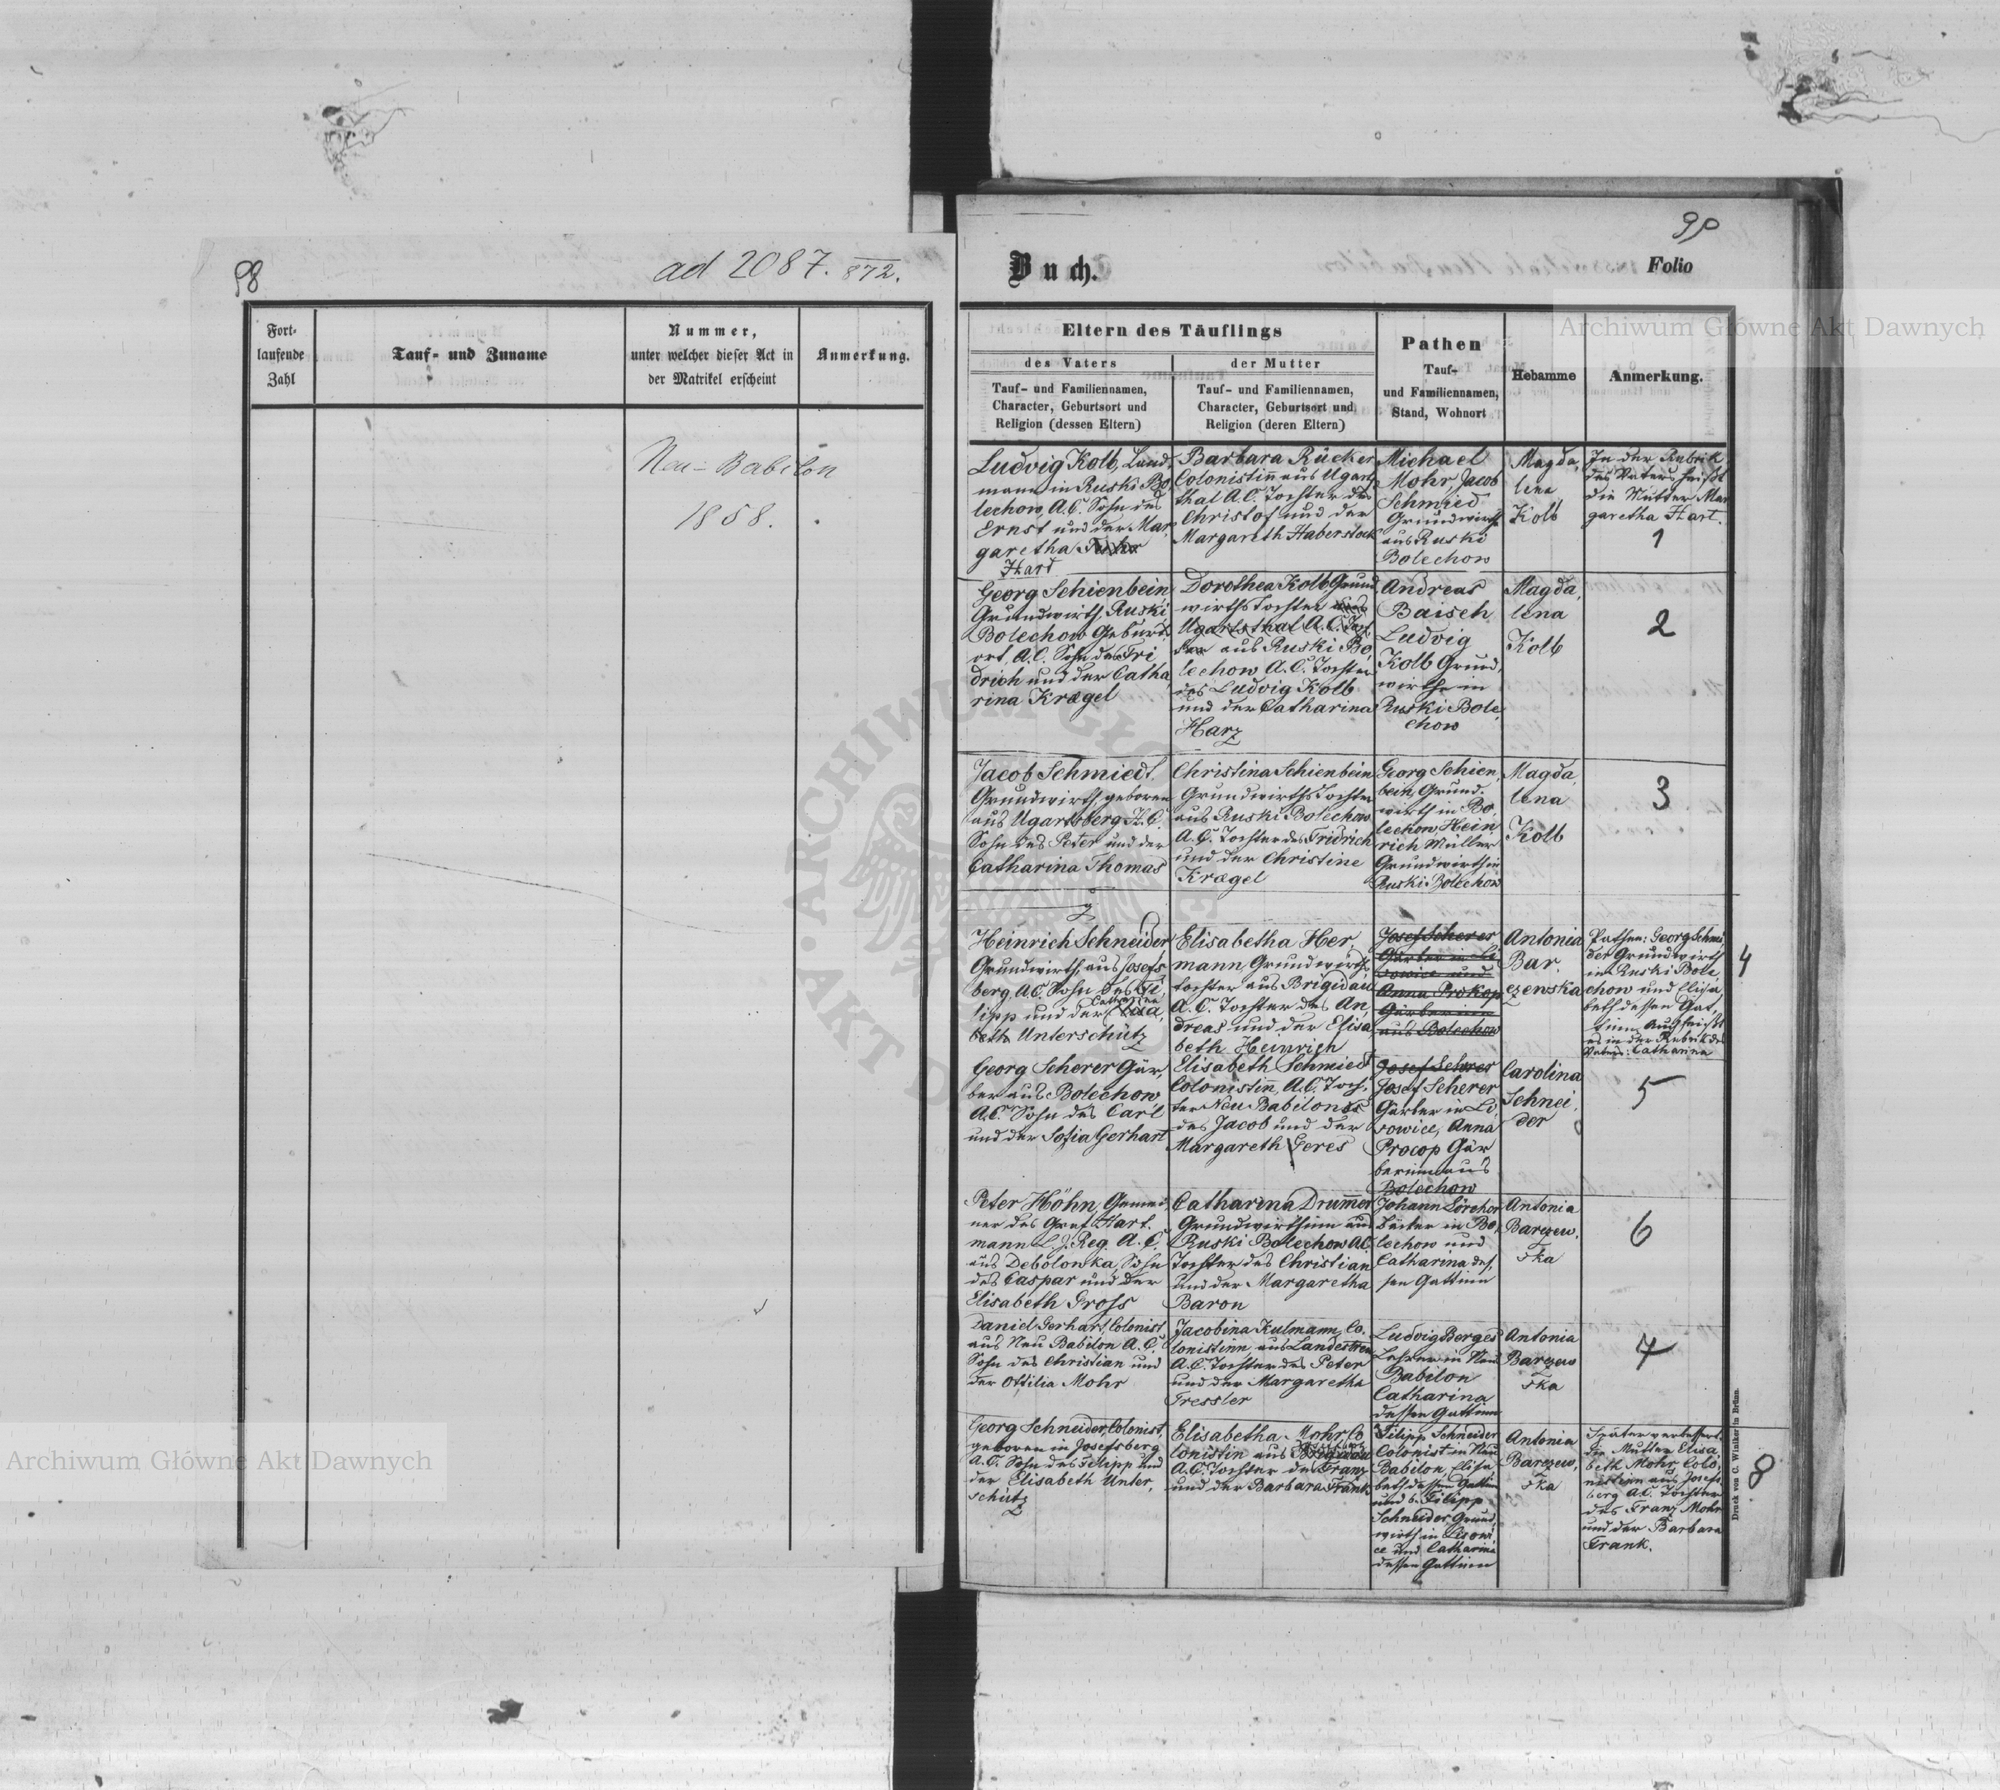 98
ad 2087. 872.
Fort-
laufende
Zahl
Tauf- und Zuname
Nummer,
unter welcher dieser Act in
der Matrikel erscheint
Anmerkung.
Neu-Babilon
1858.
90
Buch.
Folio
Eltern des Täuflings
des Vaters
Tauf- und Familiennamen,
Character, Geburtsort und
Religion (dessen Eltern)
der Mutter
Tauf- und Familiennamen,
Character, Geburtsort und
Religion (deren Eltern)
Pathen
Tauf-
und Familiennamen,
Stand, Wohnort
Hebamme
Anmerkung.
Ludvig Kolb, Land,
mann in Ruski Bo
lechow, A.C. Sohn des
Ernst und der Mar,
garetha
Hard
Barbara Rücker
Colonistinn aus Ugarts
thal A.C. Tochter des
Christof und der
Margareth Haberstock
Michael
Mohr, Jacob
Schmied
Grundwirth
aus Ruski
Bolechow
Magda,
lena
Kolb
In der Rubrik
des Vaters heißt
die Mutter Mar
garetha Hart.
1
Georg Schienbein,
Grundwirth, Ruski
Bolechow Geburts
ort, A.C. Sohn des Fri
drich und der Catha
rina Krægel
Dorothea Kolb, Grund
wirths Tochter aus
Ugartsthal A.C. Toch
ter aus Ruski Bo,
lechow A.C. Tochter
des Ludvig Kolb
und der Catharina
Harz
Andreas
Baisch
Ludvig
Kolb Grund,
wirthe in
Ruski Bole,
chow
Magda,
lena
Kolb
2
Jacob Schmiedt,
Grundwirth, geboren
aus Ugartsberg H.C.
Sohn des Peter und der
Catharina Thomas
Christina Schienbein
Grundwirths Tochter
aus Ruski Bolechow
A.C. Tochter des Fridrich
und der Christine
Krægel
Georg Schien,
bein, Grund.
wirth in Bo,
lechow, Hein
rich Müller
Grundwirth in
Ruski Bolechow
Magda,
lena
Kolb
3
Heinrich Schneider
Grundwirth, aus Josefs
berg, A.C. Sohn des Fi
lipp und der Catharina
beth Unterschütz
Elisabetha Her,
mann, Grundwirths
tochter aus Brigidau
A.C. Tochter des An,
dreas und der Elisa,
beth Heinrich
Josef Scherer
Gärber in Li
sowice und
Anna Prokop
Gärberinn
aus Bolechow
Antonia
Bar.
czewska
Pathen: Georg Schnei
der Grundwirth
in Ruski Bole,
chow und Elisa
beth dessen Gat,
tinn. Auch heißt
es in der Rubrik des
Vaters: Catharina
4
Georg Scherer Gär,
ber aus Bolechow,
A.C. Sohn des Carl
und der Sofia Gerhart
Elisabeth Schmiedt
Colonistinn, A.C. Toch,
ter Neu Babilons
des Jacob und der
Margareth Geres
Josef Scherer
Josef Scherer
Gärber in Li,
sowice, Anna
Procop Gär
berinn aus
Bolechow
Carolina
Schnei,
der
5
Peter Höhn, Gemei,
ner des Graf Hart.
mann L.J. Reg. A.C.
aus Debolonka, Sohn
des Caspar und der
Elisabeth Gross
Catharina Drummer
Grundwirthinn aus
Ruski Bolechow A.C.
Tochter des Christian
und der Margaretha
Baron
Johann Lörcher
Bäcker in Bo,
lechow und
Catharina des,
sen Gattinn
Antonia
Barczew,
ska
6
Daniel Gerhart, Colonist
aus Neu Babilon A.C.
Sohn des Christian und
der Ottilia Mohr
Jacobina Kulmann, Co.
lonistinn, aus Landestreu
A.C. Tochter des Peter
und der Margaretha
Fressler
Ludvig Berges
Lehrer in Neu
Babilon
Catharina
dessen Gattinn
Antonia
Barczew
ska
7
Georg Schneider, Colonist,
geboren in Josefsberg
A.C. Sohn des Filipp und
der Elisabeth Unter,
schütz
Elisabetha Mohr, Co
lonistin aus Josefsberg
A.C. Tochter des Franz
und der Barbara Frank
Filipp Schneider
Colonist in Neu
Babilon, Elisa
beth dessen Gattinn
und b. Filipp
Schneider, Grund,
wirth in Lisowi
ce und Catharina
dessen Gattinn
Antonia
Barczew,
ska
Später verbessert.
die Mutter Elisa
beth Mohr Colo,
nistinn aus Josefs
berg A.C. Tochter
des Franz Mohr
und der Barbara
Frank.
8
Druck von C. Winiker in Brünn.
Archiwum Główne Akt Dawnych
Archiwum Główne Akt Dawnych